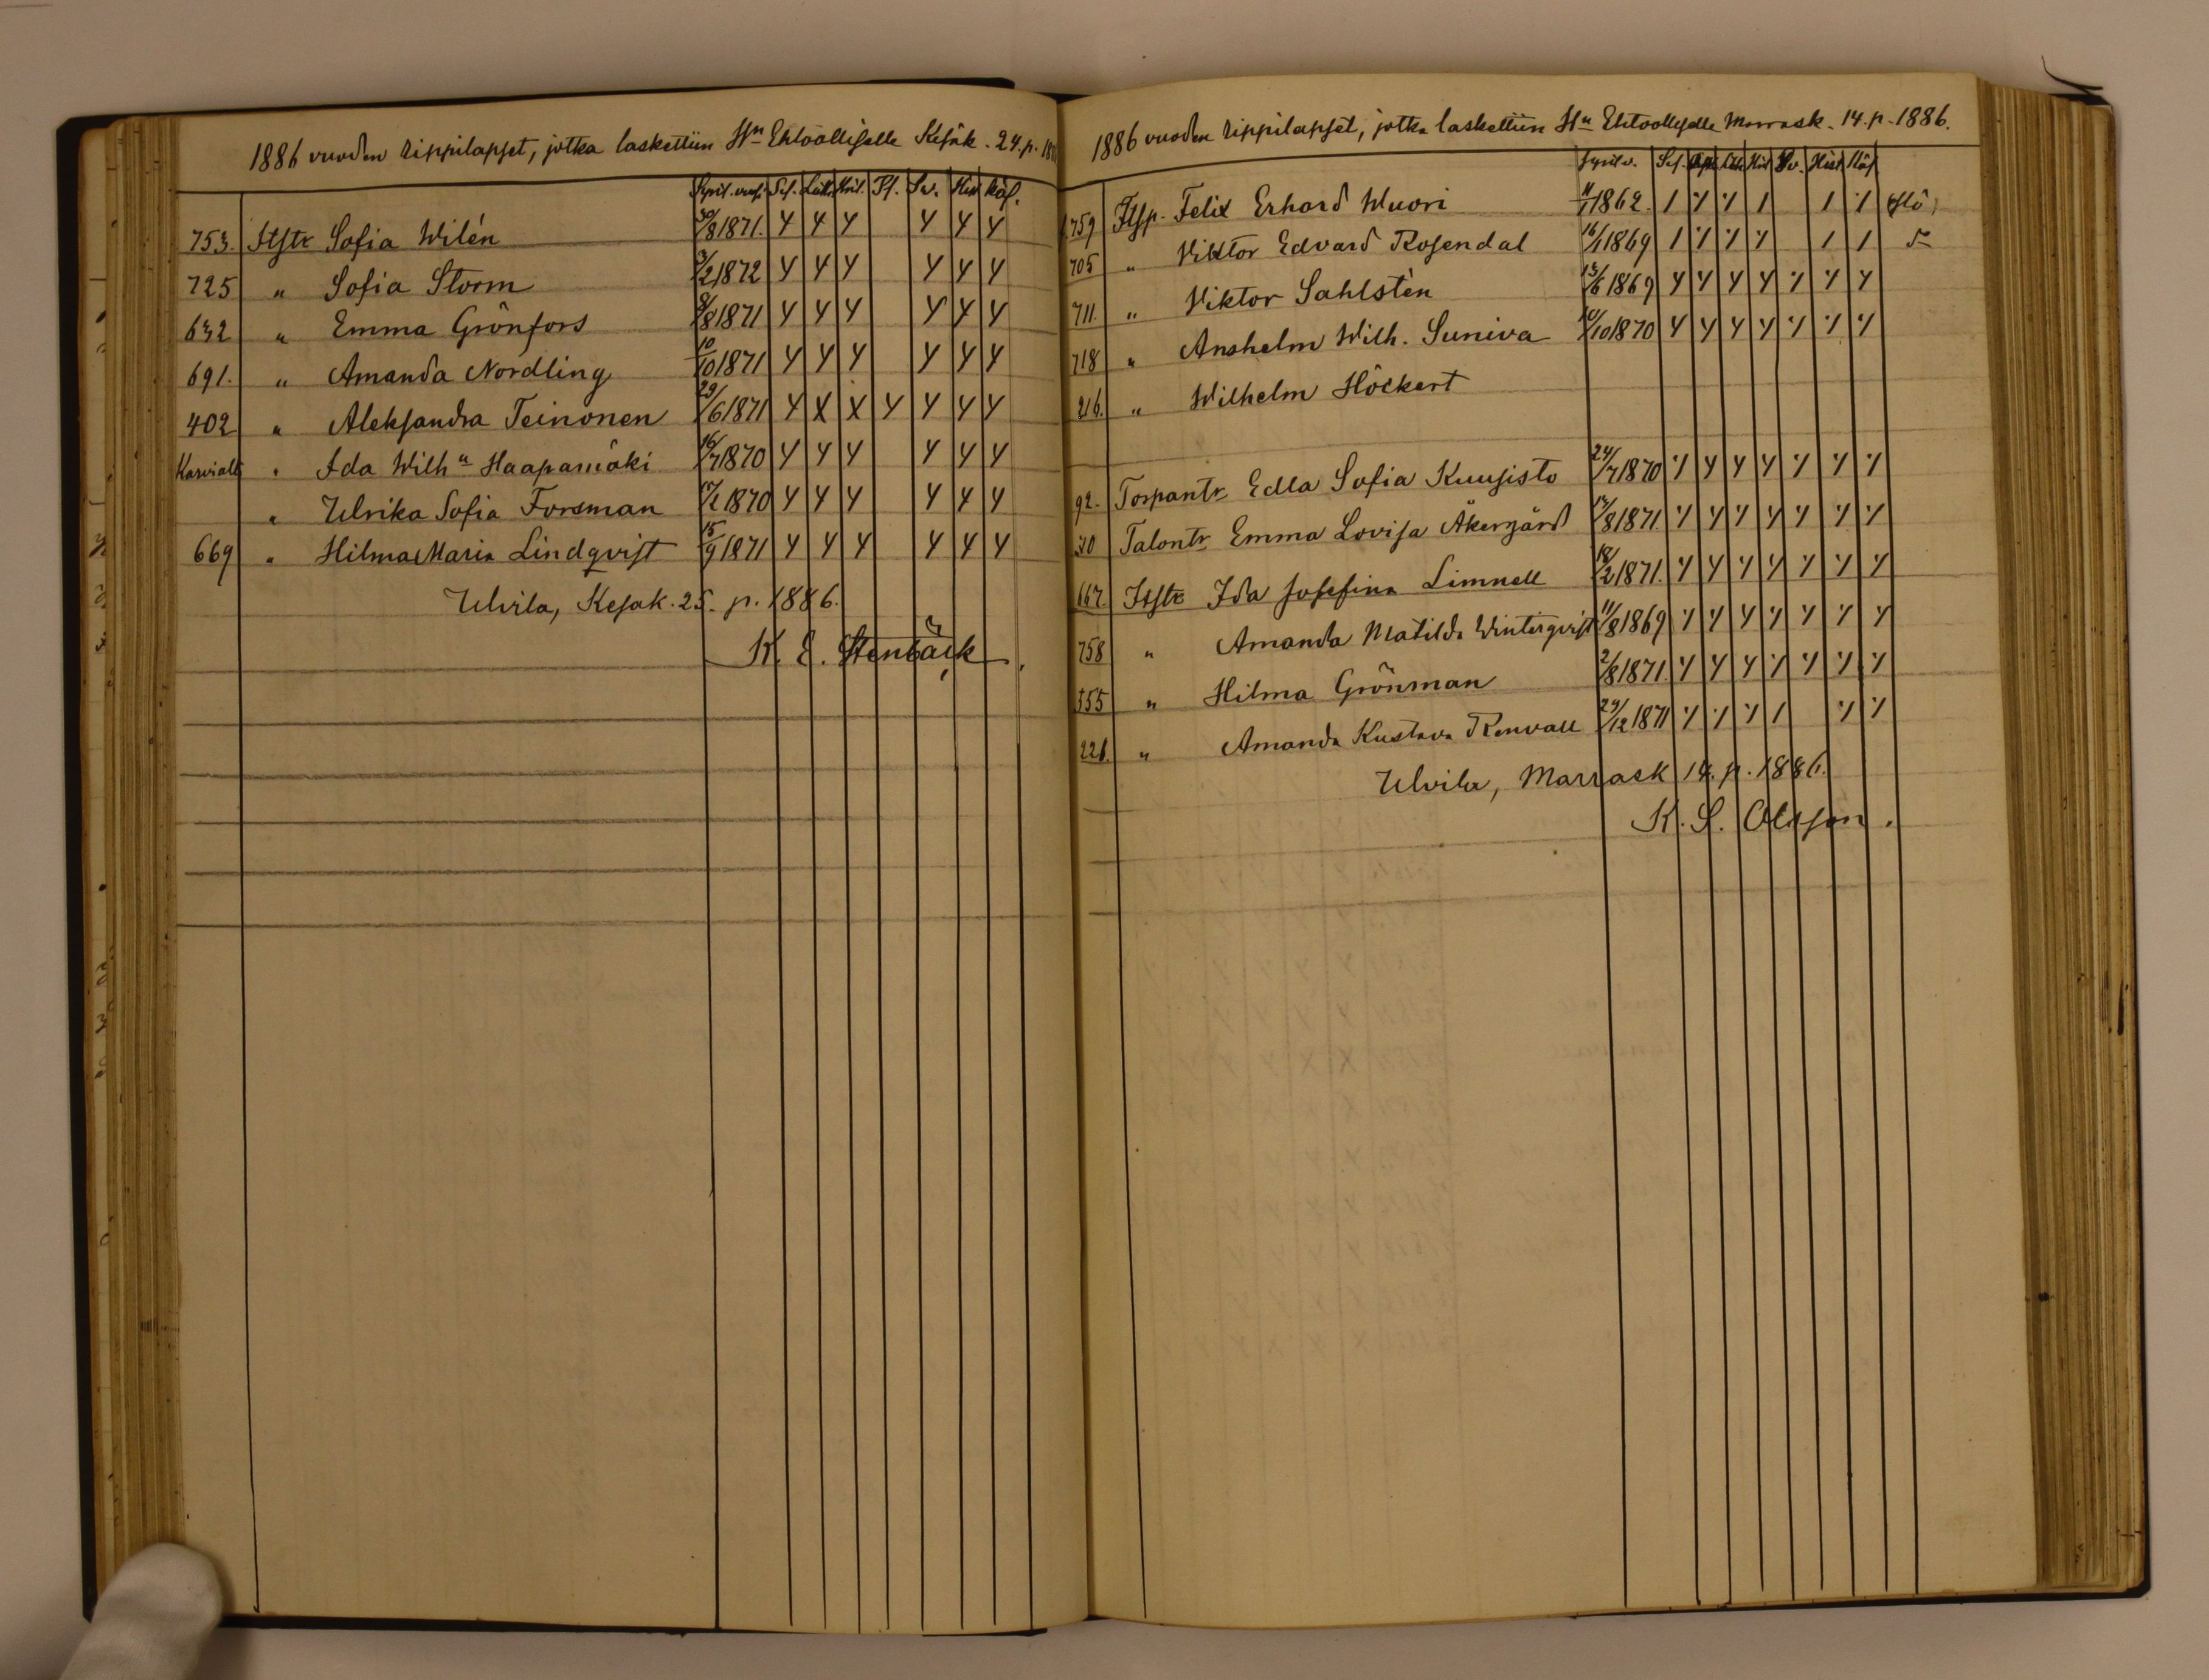 1886 vuoden rippilapset, jotka laskettiin Hn Ehtoolliselle Kesäk. 24. p. 188
Synt. vuosi Sis. Luk. Krist. Ps. Sv. Hist. Käs.
753. Itstr Sofia Wilén 30/8 1871. Y Y Y Y Y Y
725 " Sofia Storm 3/2 1872 Y Y Y Y Y Y
632 " Emma Grönfors 8/8 1871 Y Y Y Y Y Y
691. " Amanda Nordling 10/10 1871 Y Y Y Y Y Y
402 " Aleksandra Teinonen 29/6 1871 Y X X Y Y Y Y
Karvialta " Ida Wilhna Haapamäki 16/7 1870 Y Y Y Y Y Y
" Ulrika Sofia Forsman 17/1 1870 Y Y Y Y Y Y
669 " Hilma Maria Lindqvist 15/9 1871 Y Y Y Y Y Y
Ulvila, Kesäk. 25. p. 1886.
K. E. Stenbäck.
1886 vuoden rippilapset, jotka laskettiin Hn Ehtoolliselle Marrask. 14. p. 1886.
Synt. v. Sis. Luk. Krist. Sv. Hist. Käs.
759 Itsp. Felix Erhard Wuori 11/1 1862. 1 Y Y 1 1 Y
705 " Viktor Edvard Rosendal 16/1 1869 1 Y Y Y 1 1
711 " Viktor Sahlstén 13/6 1869 Y Y Y Y Y Y Y
718 " Anshelm Wilh. Suniva 10/10 1870 Y Y Y Y Y Y Y
216. " Wilhelm Höckert
92. Torpantr Edla Sofia Kuusisto 24/7 1870 Y Y Y Y Y Y Y
30 Talontr Emma Lovisa Åkergård 17/8 1871. Y Y Y Y Y Y Y
167. Itstr Ida Josefina Limnell 18/2 1871. Y Y Y Y Y Y Y
758 " Amanda Matilda Winterqvist 11/8 1869 Y Y Y Y Y Y Y
355 " Hilma Grönman 2/8 1871. Y Y Y Y Y Y Y
226. " Amanda Kustava Renvall 29/12 1871 Y Y Y 1 Y Y
Ulvila, Marrask 14. p. 1886.
K. S. Olsson.